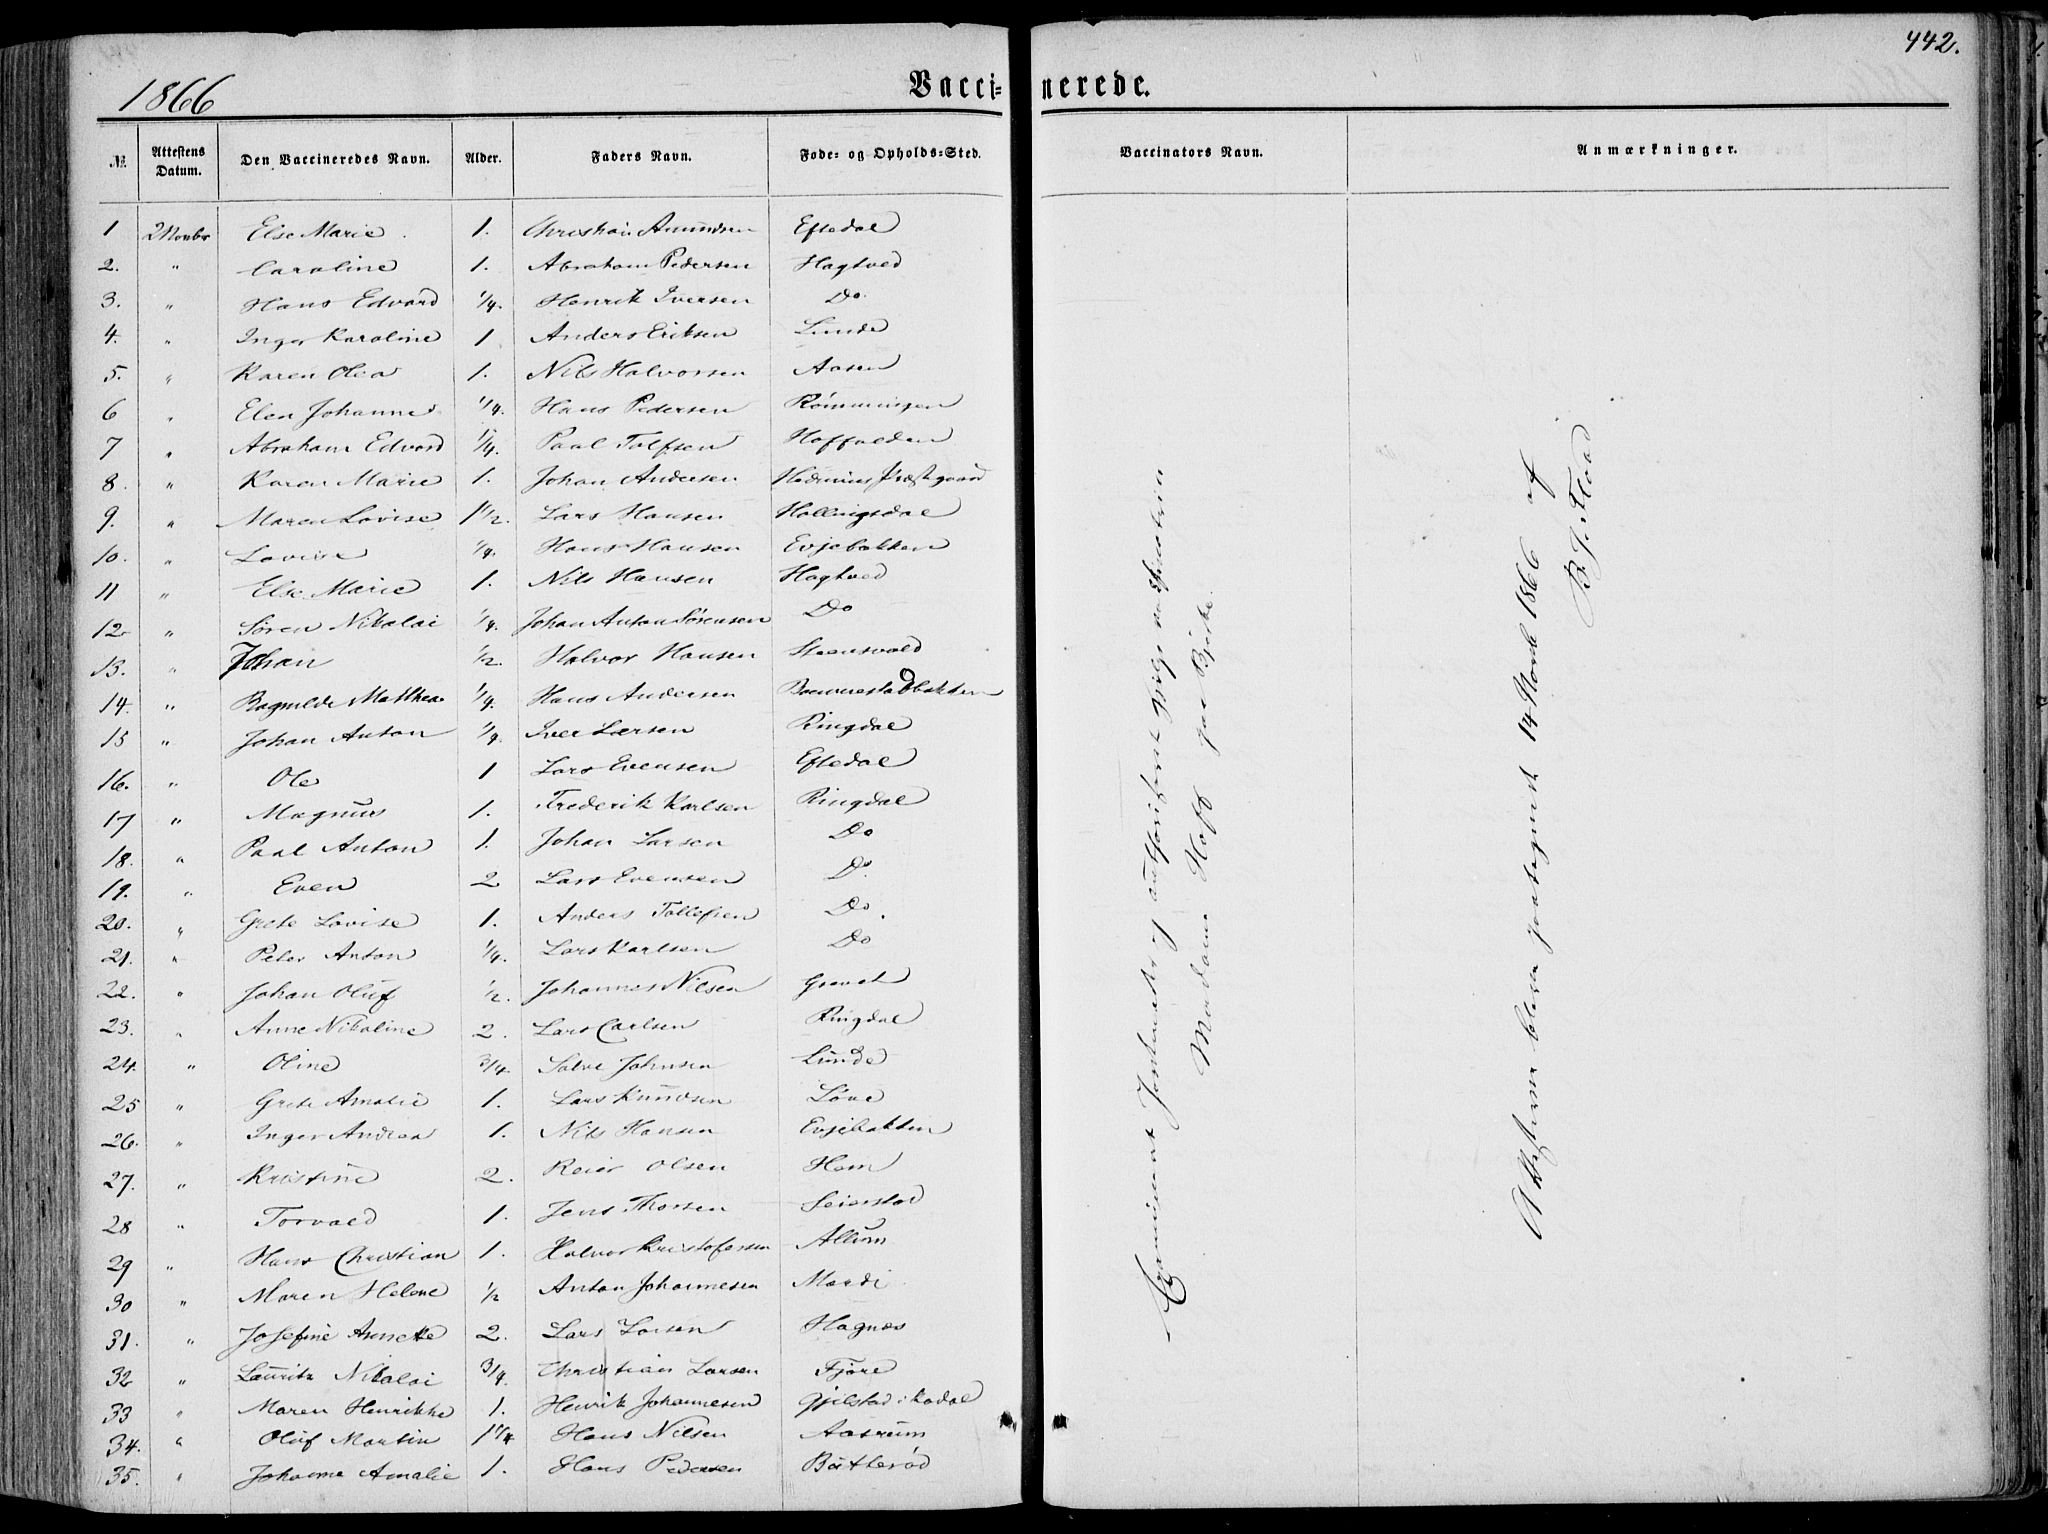 442.
1866
Vacci- nerede.
№ Attestens Datum. Den Vaccineredes Navn. Alder. Faders Navn. Føde- og Opholds-Sted. Vaccinators Navn. Anmærkninger.
1 2 Novbr Else Marie 1. Christian Amundsen Eftedal
2. " Caroline 1. Abraham Pedersen Hagtved
3. " Hans Edvard 1/4. Henrik Iversen Do
4. " Inger Karoline 1 Anders Eriksen Lunde
5. " Karen Olea 1. Nils Halvorsen Aasen
6 " Elen Johanne 1/4. Hans Pedersen Rømmingen
7 " Abraham Edvard 1/4. Paal Tolfsen Hoffalden
8. " Karen Marie 1. Johan Andersen Præstgaard
9. " Maren Lovise 1 1/2. Lars Hansen Hallingsdal
10. " Lovise 1/4. Hans Hansen Evjebakken
11 " Else Marie 1. Nils Hansen Hagtved
12. " Søren Nikolai 1/4. Johan Anton Sørensen Do
13. " Johan 1/2. Halvor Hansen Steensvold
14. " Ragnilde Mathea 1/4. Hans Andersen
15 " Johan Anton 1/4. Iver Larsen Ringdal
16. " Ole 1 Lars Evensen Eftedal
17 " Magnus 1. Frederik Karlsen Ringdal
18. " Paal Anton 1. Johan Larsen Do
19. " Even 2 Lars Evensen Do
20. " Grete Lovise 1. Anders Tollefsen Do.
21. " Peter Anton 1/4. Lars Karlsen Do
22. " Johan Oluf 1/2. Johannes Nilsen Gravet
23. " Anne Nikoline 2. Lars Carlsen Ringdal
24. " Oline 3/4. Salve Johnsen Lunde
25 " Grete Amalie 1. Lars Knudsen Løve
26. " Inger Andrea 1. Nils Hansen Evjebakken
27. " Kristine 2. Reier Olsen Hem
28 " Torvald 1. Jens Thorsen Seierstad
29 " Hans Christian 1. Halvor Kristofersen Allum
30 " Maren Helene 1/2 Anton Johannesen
31. " Josefine Annette 2. Lars Larsen Hagnæs
32 " Lauritz Nikolai 3/4. Christian Larsen Fjære
33 " Maren Henrikke 1. Henrik Johannesen Gjelstad i Kodal
34. " Oluf Martin 1 1/4 Hans Nilsen Aasrum
35. " Johanne Amalie 1. Hans Pedersen Bøtterød
Examineret Jordmoder
Madam Hoff paa Bjerke.
Attesterne bleve modtagne 14 Novbr 1866 af
B. J. Flood